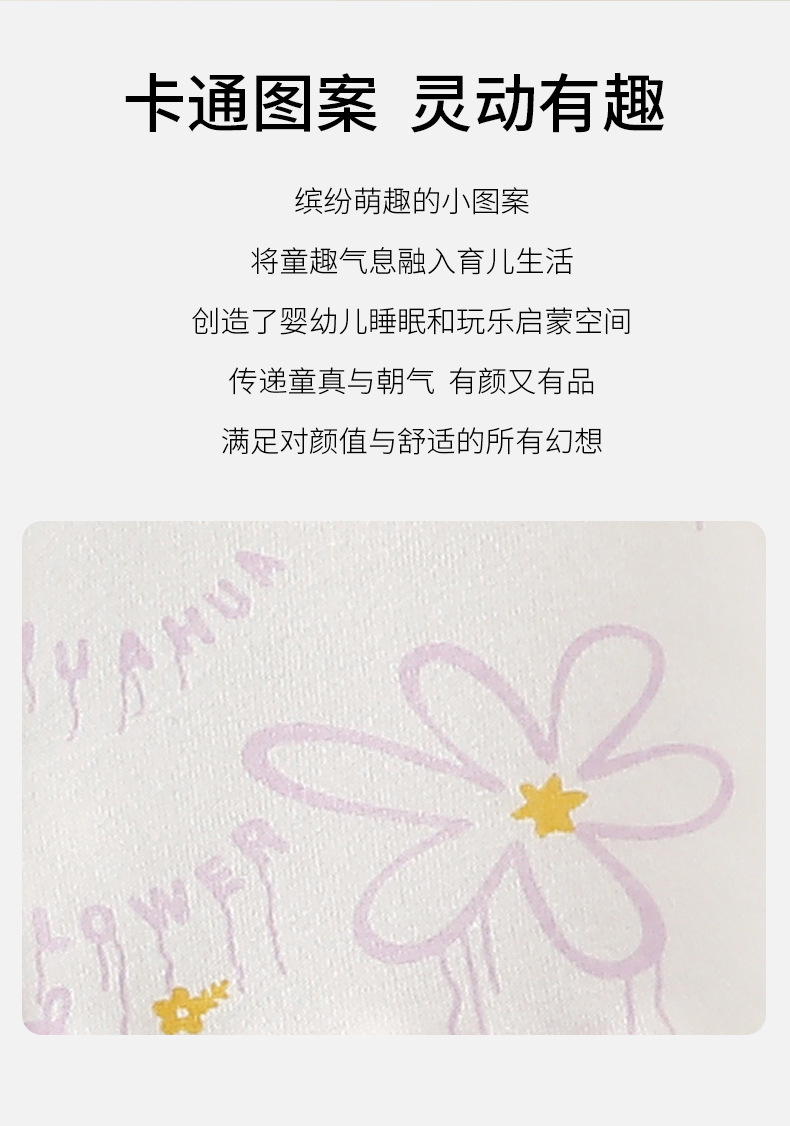 卡通图案 灵动有趣
缤纷萌趣的小图案
将童趣气息融入育儿生活
创造了婴幼儿睡眠和玩乐启蒙空间
传递童真与朝气 有颜又有品
满足对颜值与舒适的所有幻想
YAHUA
LOWER